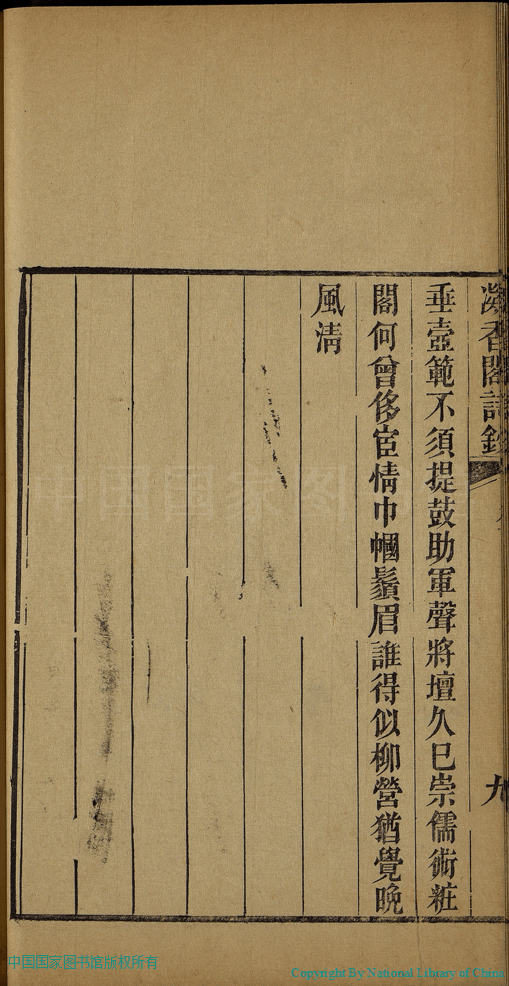 凝香閣詩鈔
九
垂壼範不須提鼓助軍聲將壇久已崇儒術粧
閣何曾侈宦情巾幗鬚眉誰得似柳營猶覺晩
風清
中国国家图书馆版权所有
Copyright By National Library of China